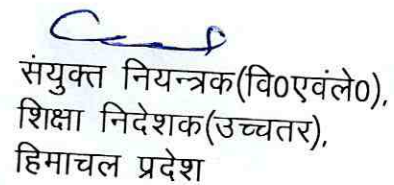 संयुक्त नियन्त्रक(वि0एवंले0),
शिक्षा निदेशक(उच्चतर),
हिमाचल प्रदेश